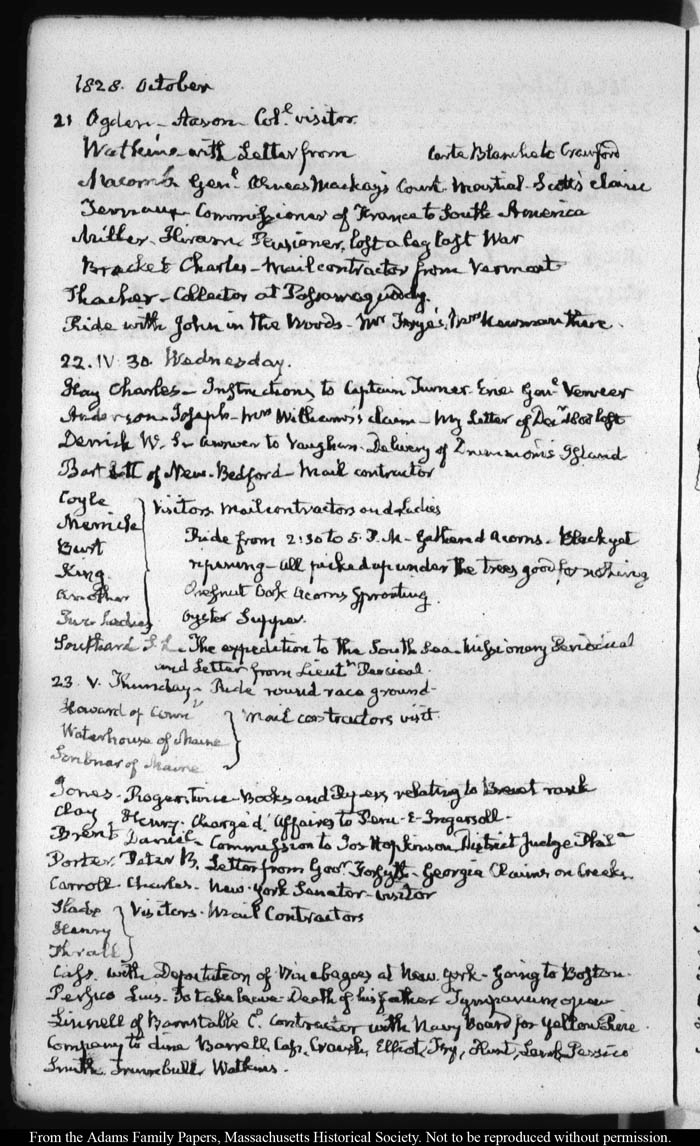 1828. October
21 Ogden - Aaron - Col.l visitor.
Watkins with Letter from Carte Blanche to Crawford
Macomb Gen.l Aeneas Mackay's Court Martial - Scott's claim
Ternaux Commissioner of France to South America
Miller - Hiram Pensioner, lost a leg last War
Bracket Charles - Mail contractor from Vermont
Thacher - Collector at Passamaquoddy.
Ride with John in the Woods - Mr Frye's, Mrs Newman there.
22. IV 30. Wednesday.
Hay Charles - Instructions to Captain Turner. Erie. Gen.l Verveer
Anderson Joseph - Mrs Williams's claim - My Letter of Dec.r lost
Derrick W. S. answer to Vaughan. Delivery of Drummond's Island
Bartlett of New-Bedford - Mail contractor
Coyle
Merrick
Burt
King
Another
Two Ladies
Visitors Mail contractors and Ladies
Ride from 2:30 to 5. P.M - Gathered Acorns. Black yet
ripening - all picked up under the trees good for nothing
Chesnut Oak Acorns Sprouting.
Oyster Supper.
Southard S. L. - The expedition to the South Sea - Missionary
and Letter from Lieut.t Percival.
23. V. Thursday - Ride round race ground -
Howard of Conn.t
Waterhouse of Maine
Scribner of Maine
Mail contractors visit.
Jones - Roger, Twice - Books and Papers relating to Brevet rank
Clay Henry. Chargé d'Affaires to Peru - E - Ingersoll.
Brent Daniel - Commission to Jos Hopkinson District Judge Phil.a
Porter. Peter B. Letter from Gov.r Forsyth - Georgia Claims on Creeks
Carroll Charles - New-York Senator - visitor
Slade
Henry
Thrall
Visitors. Mail Contractors
Cass. with Deputation of Winebagoes at New-York - Going to Boston.
Persico Luis. To take leave - Death of his father Tympanum open
Linnell of Barnstable C.o contractor with Navy Board for Yellow Pine
Company to dine Barrell, Cass, Elliot, Fry, Hunt, Persico
Smith. Trumbull Watkins.
From the Adams Family Papers, Massachusetts Historical Society. Not to be reproduced without permission.